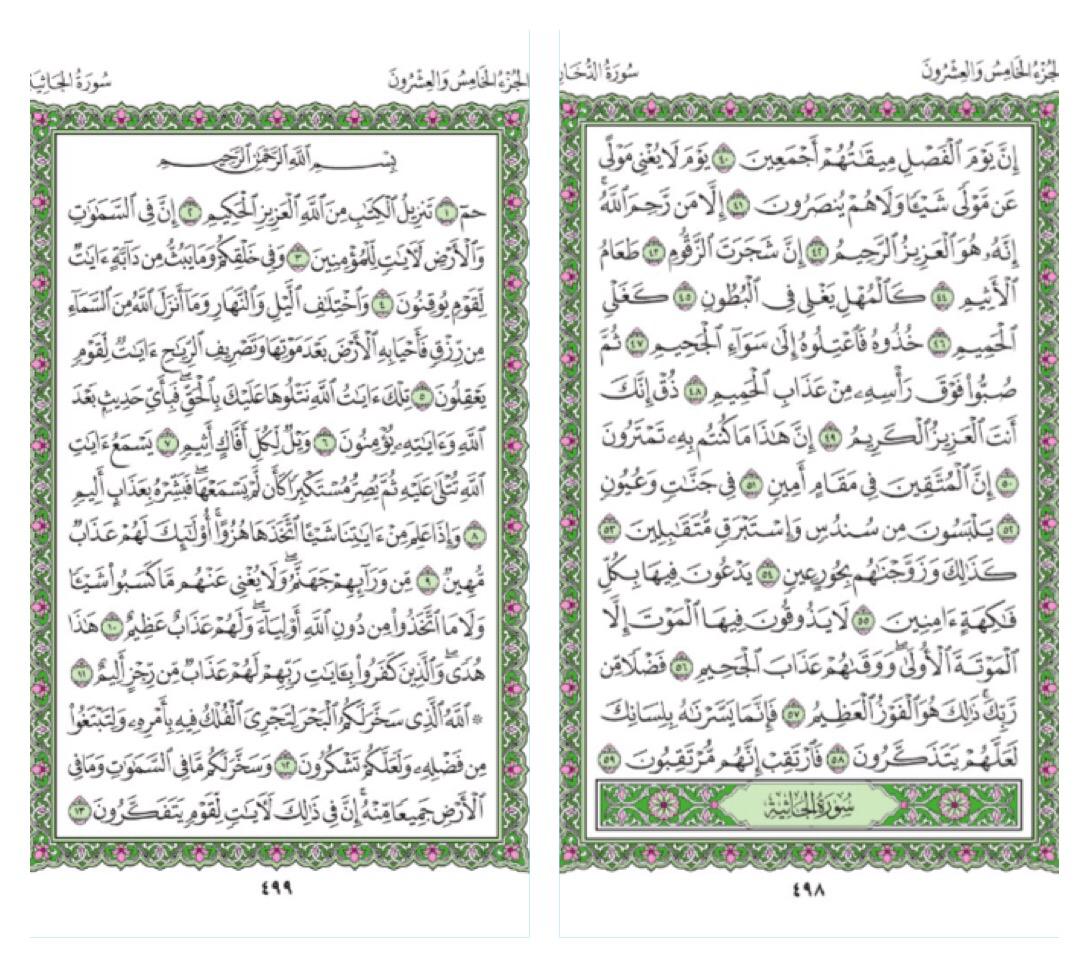 الجزء الخامس والعشرون
سورة الدخان
إِنَّ يَوْمَ ٱلْفَصْلِ مِيقَٰتُهُمْ أَجْمَعِينَ ٤٠ يَوْمَ لَا يُغْنِي مَوْلًى
عَن مَّوْلًى شَيْـًٔا وَلَا هُمْ يُنصَرُونَ ٤١ إِلَّا مَن رَّحِمَ ٱللَّهُۚ
إِنَّهُۥ هُوَ ٱلْعَزِيزُ ٱلرَّحِيمُ ٤٢ إِنَّ شَجَرَتَ ٱلزَّقُّومِ ٤٣ طَعَامُ
ٱلْأَثِيمِ ٤٤ كَٱلْمُهْلِ يَغْلِي فِي ٱلْبُطُونِ ٤٥ كَغَلْيِ
ٱلْحَمِيمِ ٤٦ خُذُوهُ فَٱعْتِلُوهُ إِلَىٰ سَوَآءِ ٱلْجَحِيمِ ٤٧ ثُمَّ
صُبُّوا۟ فَوْقَ رَأْسِهِۦ مِنْ عَذَابِ ٱلْحَمِيمِ ٤٨ ذُقْ إِنَّكَ
أَنتَ ٱلْعَزِيزُ ٱلْكَرِيمُ ٤٩ إِنَّ هَٰذَا مَا كُنتُم بِهِۦ تَمْتَرُونَ
٥٠ إِنَّ ٱلْمُتَّقِينَ فِي مَقَامٍ أَمِينٍ ٥١ فِي جَنَّٰتٍ وَعُيُونٍ
٥٢ يَلْبَسُونَ مِن سُندُسٍ وَإِسْتَبْرَقٍ مُّتَقَٰبِلِينَ ٥٣
كَذَٰلِكَ وَزَوَّجْنَٰهُم بِحُورٍ عِينٍ ٥٤ يَدْعُونَ فِيهَا بِكُلِّ
فَٰكِهَةٍ ءَامِنِينَ ٥٥ لَا يَذُوقُونَ فِيهَا ٱلْمَوْتَ إِلَّا
ٱلْمَوْتَةَ ٱلْأُولَىٰۖ وَوَقَىٰهُمْ عَذَابَ ٱلْجَحِيمِ ٥٦ فَضْلًا مِّن
رَّبِّكَۚ ذَٰلِكَ هُوَ ٱلْفَوْزُ ٱلْعَظِيمُ ٥٧ فَإِنَّمَا يَسَّرْنَٰهُ بِلِسَانِكَ
لَعَلَّهُمْ يَتَذَكَّرُونَ ٥٨ فَٱرْتَقِبْ إِنَّهُم مُّرْتَقِبُونَ ٥٩
سُورَةُ الجَاثِيَةِ
٤٩٨
الجزء الخامس والعشرون
سورة الجاثية
بِسْمِ ٱللَّهِ ٱلرَّحْمَٰنِ ٱلرَّحِيمِ
حمٓ ١ تَنزِيلُ ٱلْكِتَٰبِ مِنَ ٱللَّهِ ٱلْعَزِيزِ ٱلْحَكِيمِ ٢ إِنَّ فِي ٱلسَّمَٰوَٰتِ
وَٱلْأَرْضِ لَأٓيَٰتٍ لِّلْمُؤْمِنِينَ ٣ وَفِي خَلْقِكُمْ وَمَا يَبُثُّ مِن دَآبَّةٍ ءَايَٰتٌ
لِّقَوْمٍ يُوقِنُونَ ٤ وَٱخْتِلَٰفِ ٱلَّيْلِ وَٱلنَّهَارِ وَمَآ أَنزَلَ ٱللَّهُ مِنَ ٱلسَّمَآءِ
مِن رِّزْقٍ فَأَحْيَا بِهِ ٱلْأَرْضَ بَعْدَ مَوْتِهَا وَتَصْرِيفِ ٱلرِّيَٰحِ ءَايَٰتٌ لِّقَوْمٍ
يَعْقِلُونَ ٥ تِلْكَ ءَايَٰتُ ٱللَّهِ نَتْلُوهَا عَلَيْكَ بِٱلْحَقِّۖ فَبِأَيِّ حَدِيثٍۭ بَعْدَ
ٱللَّهِ وَءَايَٰتِهِۦ يُؤْمِنُونَ ٦ وَيْلٌ لِّكُلِّ أَفَّاكٍ أَثِيمٍ ٧ يَسْمَعُ ءَايَٰتِ
ٱللَّهِ تُتْلَىٰ عَلَيْهِ ثُمَّ يُصِرُّ مُسْتَكْبِرًا كَأَن لَّمْ يَسْمَعْهَاۖ فَبَشِّرْهُ بِعَذَابٍ أَلِيمٍ
٨ وَإِذَا عَلِمَ مِنْ ءَايَٰتِنَا شَيْـًٔا ٱتَّخَذَهَا هُزُوًاۚ أُو۟لَٰٓئِكَ لَهُمْ عَذَابٌ
مُّهِينٌ ٩ مِّن وَرَآئِهِمْ جَهَنَّمُۖ وَلَا يُغْنِي عَنْهُم مَّا كَسَبُوا۟ شَيْـًٔا
وَلَا مَا ٱتَّخَذُوا۟ مِن دُونِ ٱللَّهِ أَوْلِيَآءَۖ وَلَهُمْ عَذَابٌ عَظِيمٌ ١٠ هَٰذَا
هُدًىۖ وَٱلَّذِينَ كَفَرُوا۟ بِـَٔايَٰتِ رَبِّهِمْ لَهُمْ عَذَابٌ مِّن رِّجْزٍ أَلِيمٌ ١١
۞ ٱللَّهُ ٱلَّذِي سَخَّرَ لَكُمُ ٱلْبَحْرَ لِتَجْرِيَ ٱلْفُلْكُ فِيهِ بِأَمْرِهِۦ وَلِتَبْتَغُوا۟
مِن فَضْلِهِۦ وَلَعَلَّكُمْ تَشْكُرُونَ ١٢ وَسَخَّرَ لَكُم مَّا فِي ٱلسَّمَٰوَٰتِ وَمَا فِي
ٱلْأَرْضِ جَمِيعًا مِّنْهُۚ إِنَّ فِي ذَٰلِكَ لَأٓيَٰتٍ لِّقَوْمٍ يَتَفَكَّرُونَ ١٣
٤٩٩